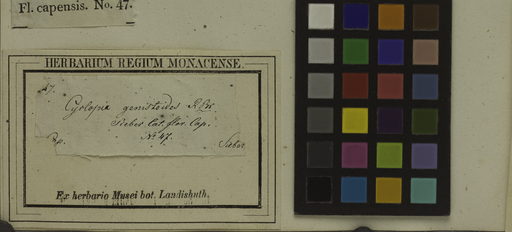 Fl. capensis. No. 47.
HERBARIUM REGIUM MONACENSE.
47.
Cyclopia genistoides R. Br.
Sieber. Cat. flor. Cap.
No 47.
Sieber
Ex herbario Musei bot. Landishuth.